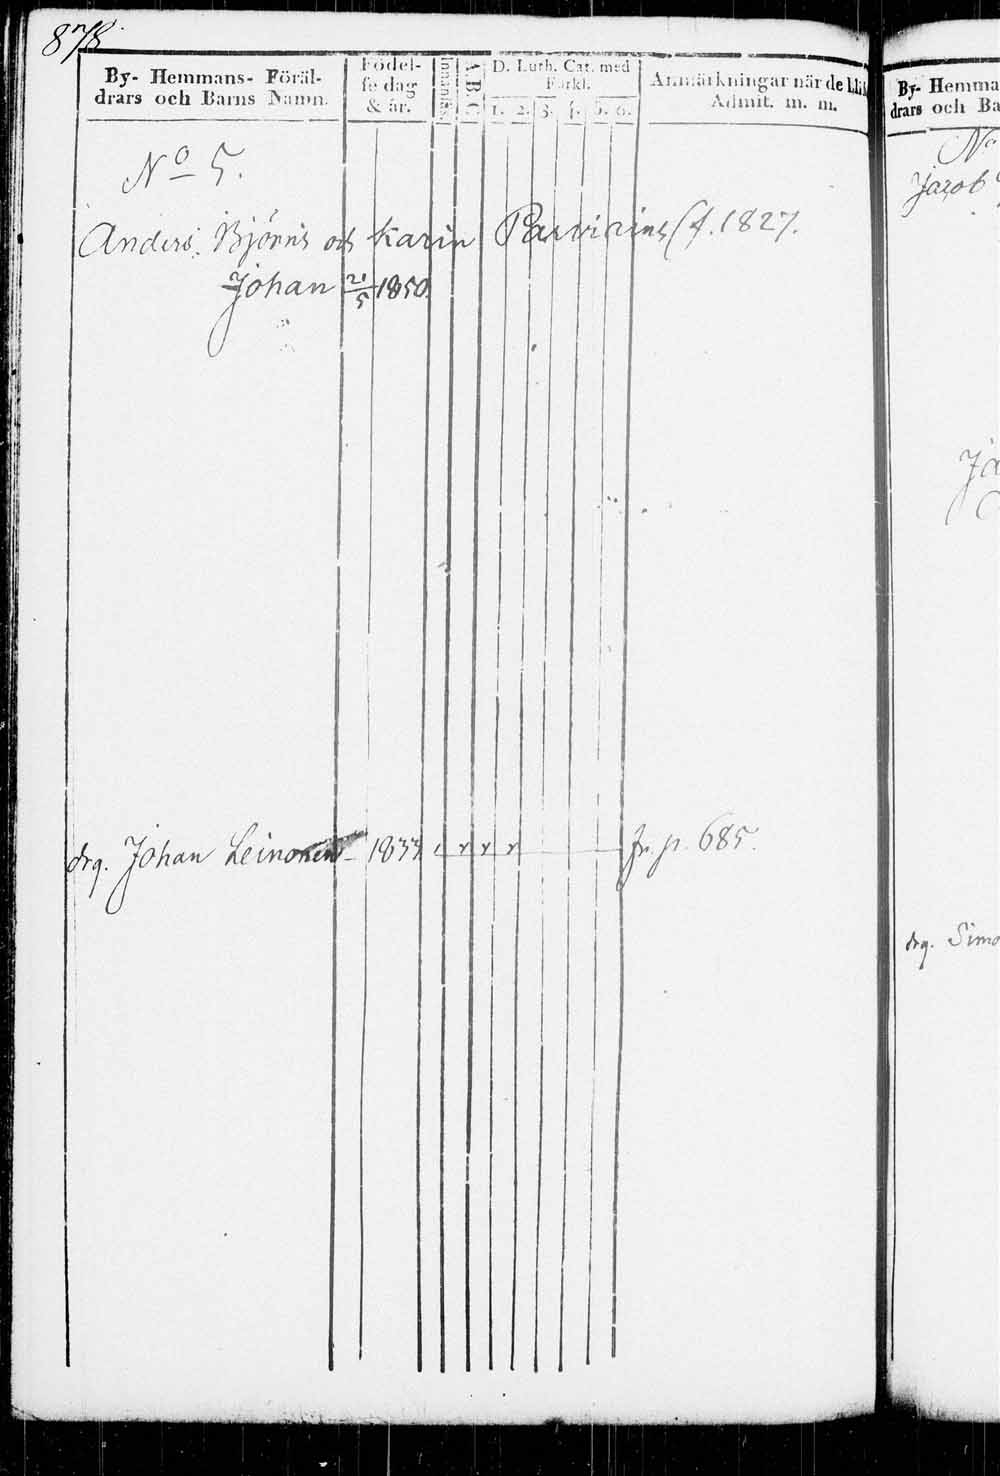 878.
By- Hemmans- Föräl-
drars och Barns Namn.
Födel-
se dag
& år.
Innanläs.
A B C
D. Luth. Cat. med
Förkl.
1. 2. 3. 4. 5. 6.
Anmärkningar när de bli
Admit. m. m.
No 5.
Anders Björns och Karin Parviains (f. 1827.
Johan 21/5 1850.
drg. Johan Leinonen 1833 Fr. p. 685.
By- Hemma
drars och Ba
No
Jacob
Ja
drg. Simo